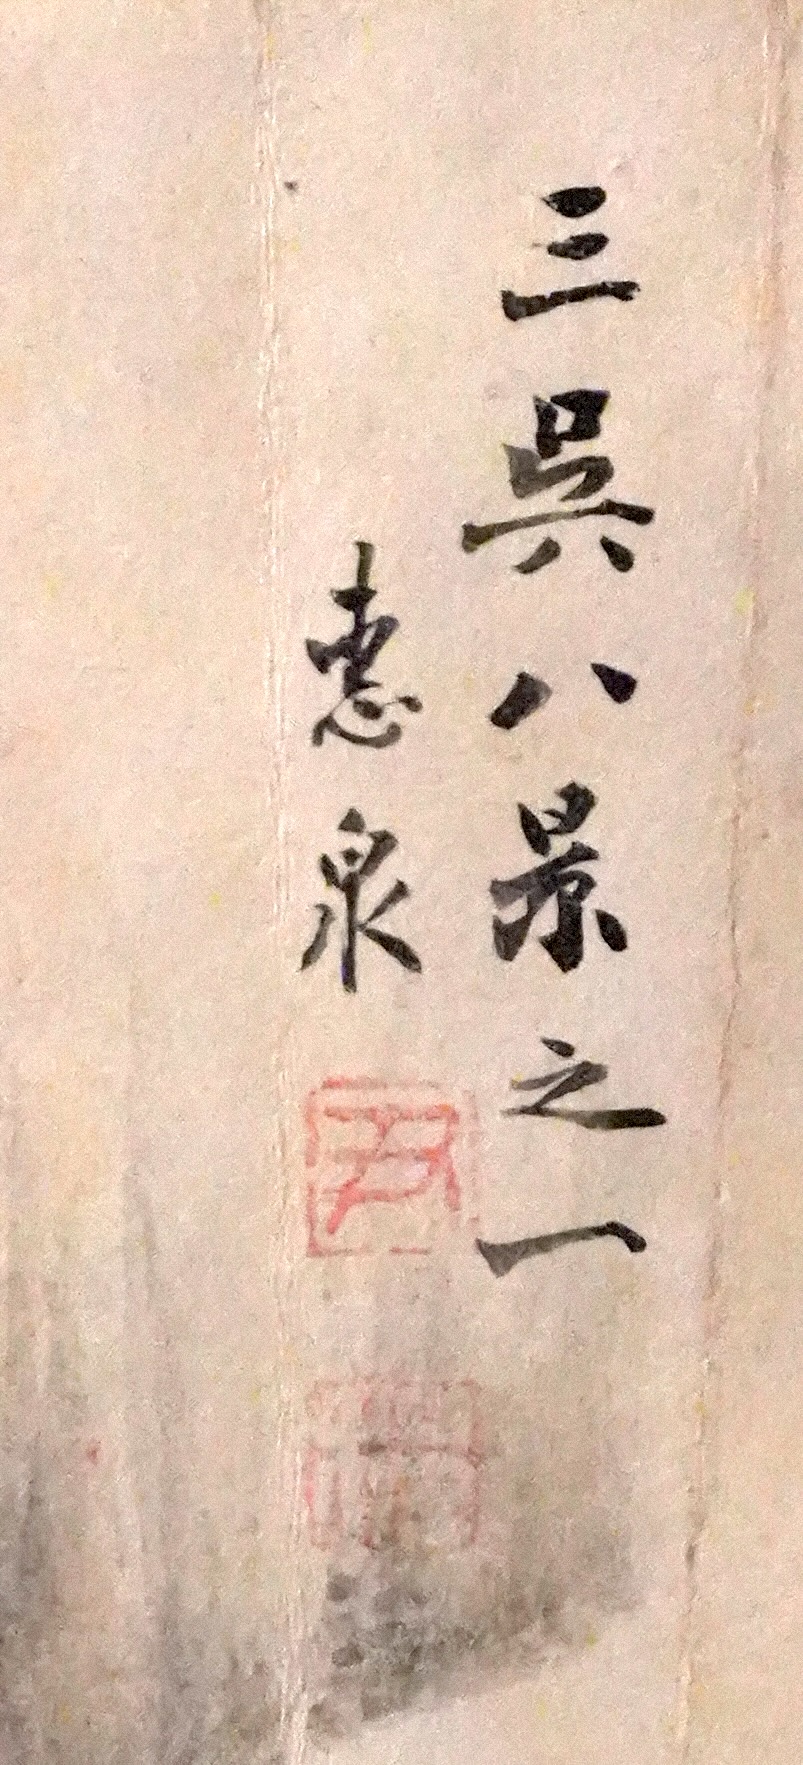 三吳八景之一
惠泉